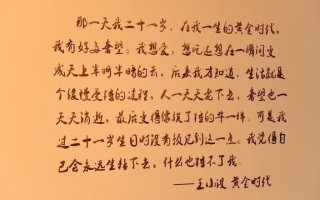 那一天我二十一岁，在我一生的黄金时代，
我有好多奢望。我想爱，想吃，还想在一瞬间变
成天上半明半暗的云，后来我才知道，生活就是
个缓慢受锤的过程，人一天天老下去，奢望也一
天天消逝，最后变得像挨了锤的牛一样。可是我
过二十一岁生日时没有预见到这一点。我觉得自
己会永远生猛下去，什么也锤不了我。
——王小波 黄金时代